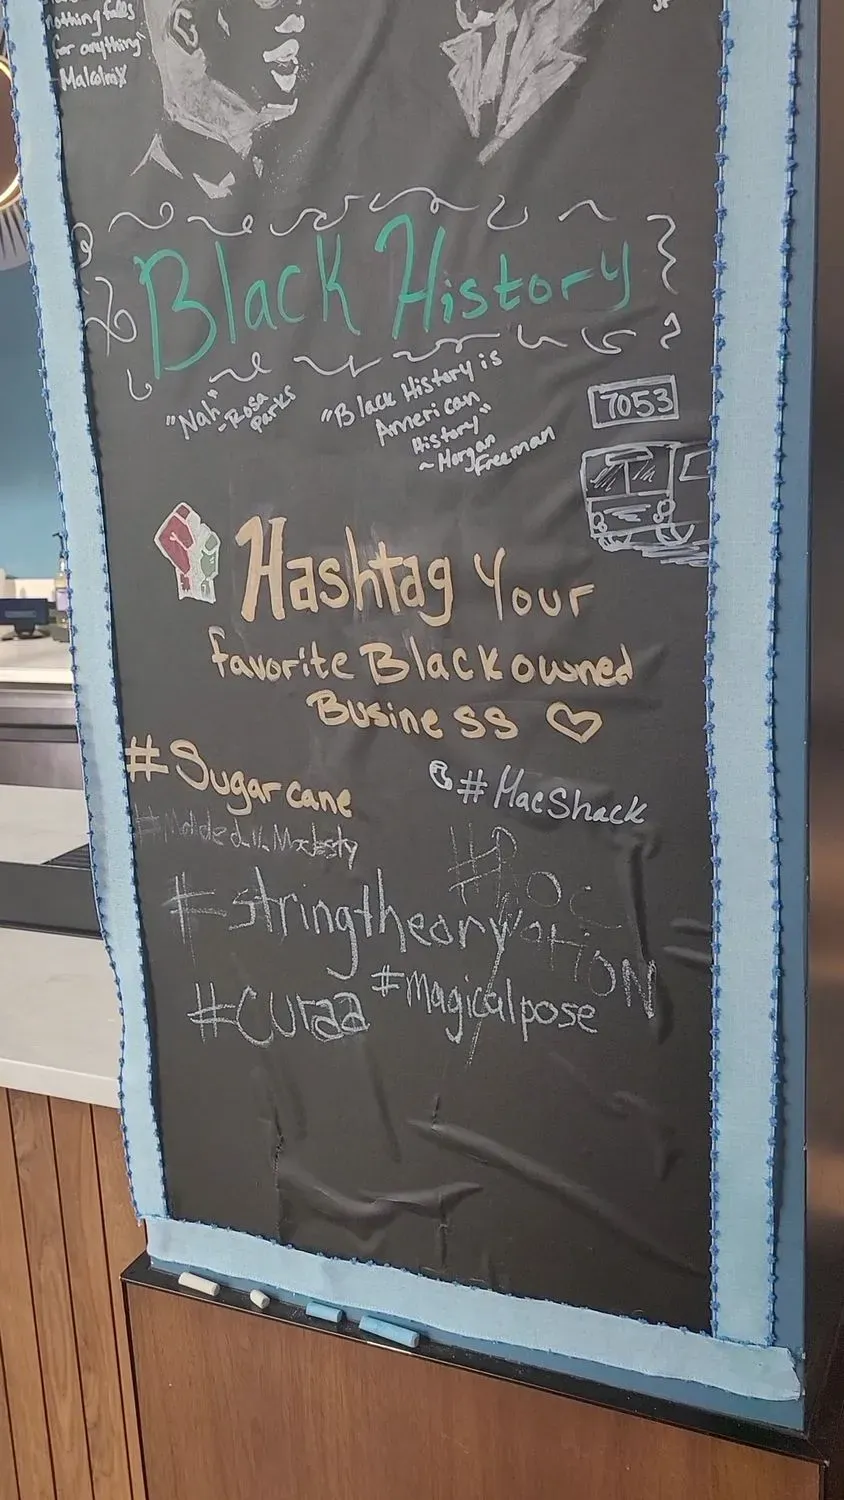 nothing falls
for anything"
Malcolm X
Black History
"Nah"
~Rosa
Parks
"Black History is
American
History"
~ Morgan
Freeman
7053
Hashtag Your
favorite Black owned
Business ♡
#Sugarcane
#MacShack
#stringtheory
#Curaa
#magicalpose